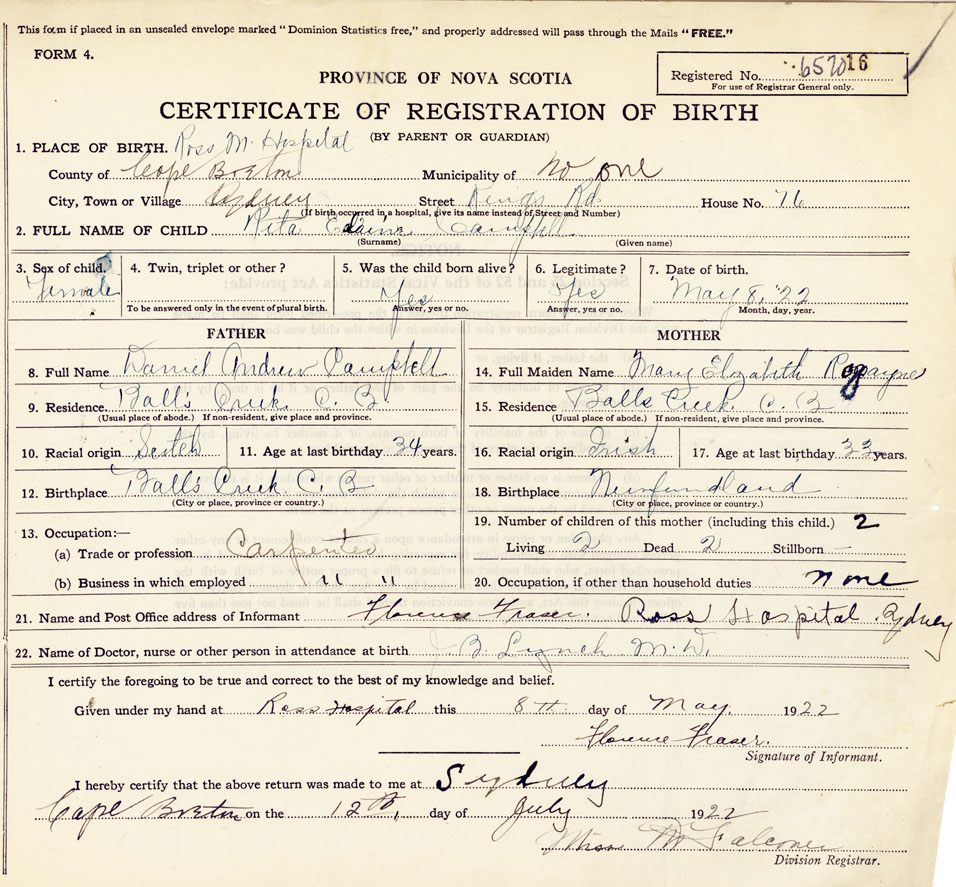 This form if placed in an unsealed envelope marked "Dominion Statistics free," and properly addressed will pass through the Mails "FREE."
FORM 4.
Registered No. 657016
For use of Registrar General only.
PROVINCE OF NOVA SCOTIA
CERTIFICATE OF REGISTRATION OF BIRTH
(BY PARENT OR GUARDIAN)
1. PLACE OF BIRTH. Ross M. Hospital
County of Cape Breton Municipality of No one
City, Town or Village Sydney Street Kings Rd. House No. 76
(If birth occurred in a hospital, give its name instead of Street and Number)
2. FULL NAME OF CHILD Rita Elaine Campbell
(Surname) (Given name)
3. Sex of child. Female
4. Twin, triplet or other?
To be answered only in the event of plural birth.
5. Was the child born alive? Yes
Answer, yes or no.
6. Legitimate? Yes
Answer, yes or no.
7. Date of birth. May 8, '22
Month, day, year.
FATHER
8. Full Name Daniel Andrew Campbell
9. Residence Balls Creek C. B
(Usual place of abode.) If non-resident, give place and province.
10. Racial origin Scotch 11. Age at last birthday 34 years.
12. Birthplace Balls Creek C. B
(City or place, province or country.)
13. Occupation:—
(a) Trade or profession Carpenter
(b) Business in which employed " "
MOTHER
14. Full Maiden Name Mary Elizabeth
15. Residence Balls Creek C. B
(Usual place of abode.) If non-resident, give place and province.
16. Racial origin Irish 17. Age at last birthday 33 years.
18. Birthplace Newfundland
(City or place, province or country.)
19. Number of children of this mother (including this child.) 2
Living 2 Dead 2 Stillborn —
20. Occupation, if other than household duties none
21. Name and Post Office address of Informant Florence Fraser. Ross Hospital. Sydney
22. Name of Doctor, nurse or other person in attendance at birth J. B. Lynch M. D.
I certify the foregoing to be true and correct to the best of my knowledge and belief.
Given under my hand at Ross Hospital this 8th day of May. 1922
Florence Fraser.
Signature of Informant.
I hereby certify that the above return was made to me at Sydney
Cape Breton on the 12th, day of July 1922
Miss M Falconer
Division Registrar.